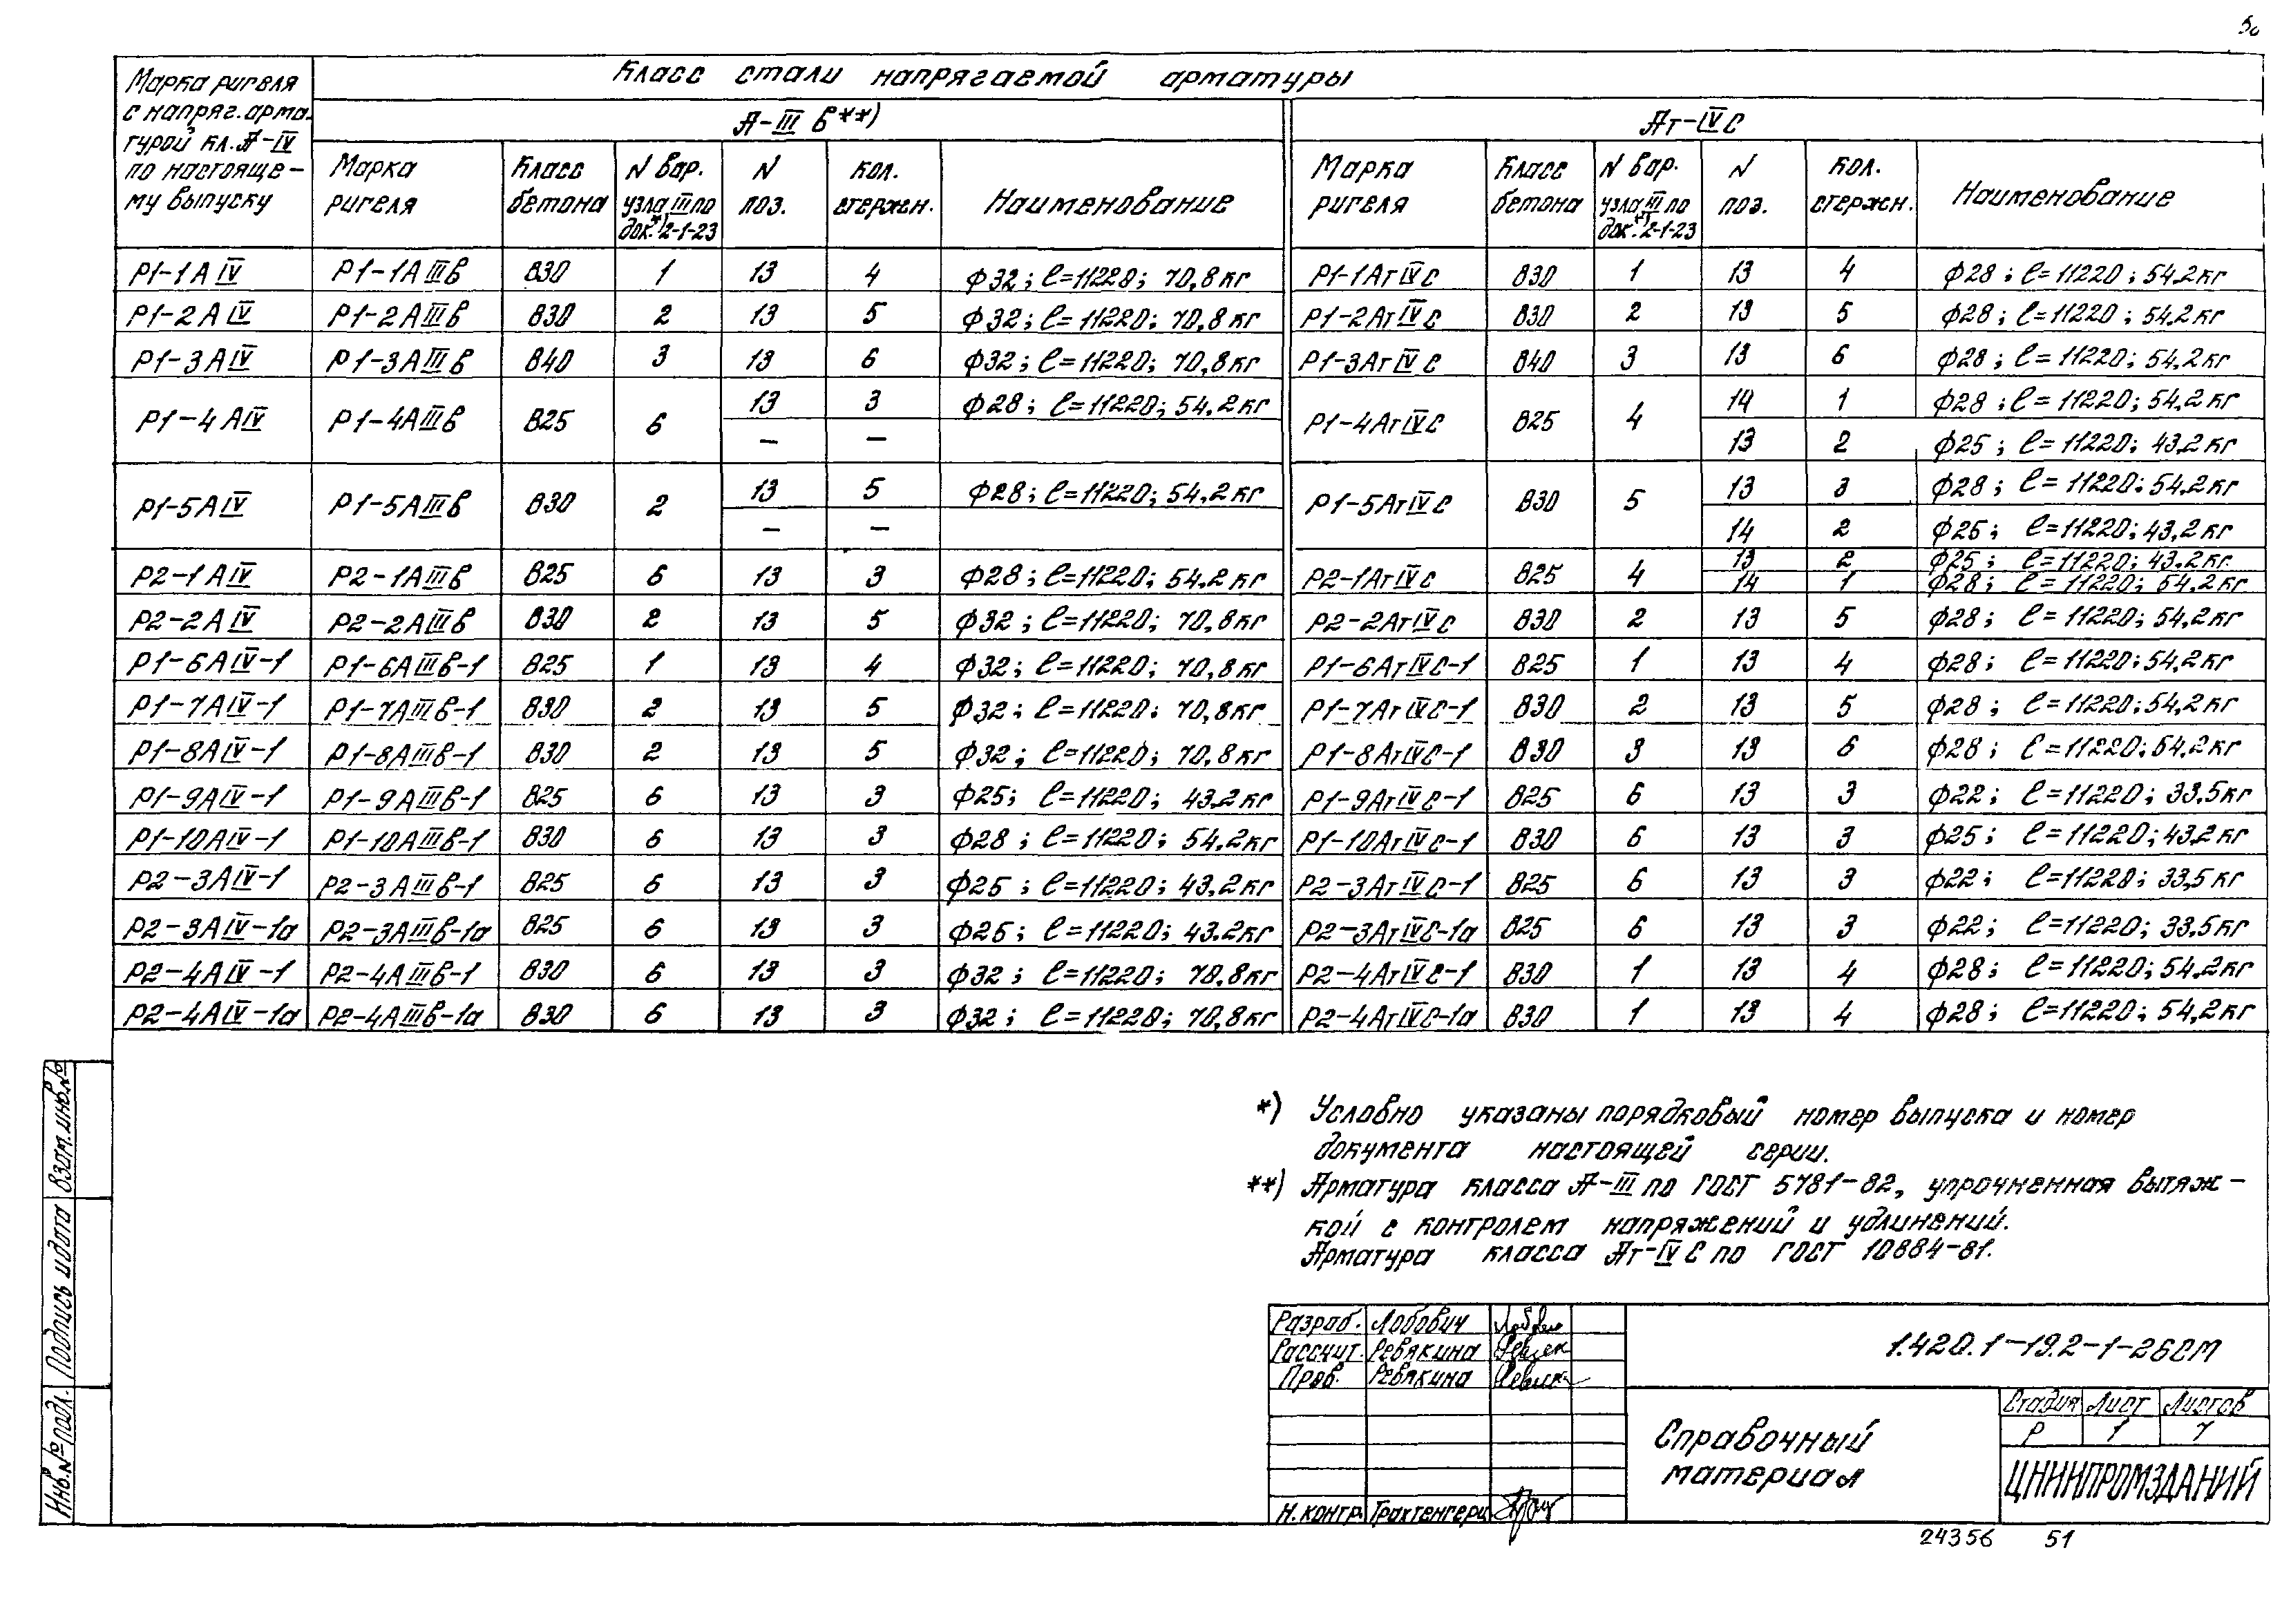 50
Марка ригеля с напряг. арматурой кл. А-IV по настоящему выпуску
Класс стали напрягаемой арматуры
А-III в**)
Ат-IVС
Марка ригеля | Класс бетона | N вар. узла III по док.*) 2-1-23 | N поз. | Кол. стержн. | Наименование | Марка ригеля | Класс бетона | N вар. узла III по док.*) 2-1-23 | N поз. | Кол. стержн. | Наименование
Р1-1АIV | Р1-1АIIIв | В30 | 1 | 13 | 4 | ф32; ℓ=11220; 70,8кг | Р1-1АтIVС | В30 | 1 | 13 | 4 | ф28; ℓ=11220; 54,2кг
Р1-2АIV | Р1-2АIIIв | В30 | 2 | 13 | 5 | ф32; ℓ=11220; 70,8кг | Р1-2АтIVС | В30 | 2 | 13 | 5 | ф28; ℓ=11220; 54,2кг
Р1-3АIV | Р1-3АIIIв | В40 | 3 | 13 | 6 | ф32; ℓ=11220; 70,8кг | Р1-3АтIVС | В40 | 3 | 13 | 6 | ф28; ℓ=11220; 54,2кг
Р1-4АIV | Р1-4АIIIв | В25 | 6 | 13 | 3 | ф28; ℓ=11220; 54,2кг | Р1-4АтIVС | В25 | 4 | 14 | 1 | ф28; ℓ=11220; 54,2кг
– | – | 13 | 2 | ф25; ℓ=11220; 43,2кг
Р1-5АIV | Р1-5АIIIв | В30 | 2 | 13 | 5 | ф28; ℓ=11220; 54,2кг | Р1-5АтIVС | В30 | 5 | 13 | 3 | ф28; ℓ=11220; 54,2кг
– | – | 14 | 2 | ф25; ℓ=11220; 43,2кг
Р2-1АIV | Р2-1АIIIв | В25 | 6 | 13 | 3 | ф28; ℓ=11220; 54,2кг | Р2-1АтIVС | В25 | 4 | 13 | 2 | ф25; ℓ=11220; 43,2кг
14 | 1 | ф28; ℓ=11220; 54,2кг
Р2-2АIV | Р2-2АIIIв | В30 | 2 | 13 | 5 | ф32; ℓ=11220; 70,8кг | Р2-2АтIVС | В30 | 2 | 13 | 5 | ф28; ℓ=11220; 54,2кг
Р1-6АIV-1 | Р1-6АIIIв-1 | В25 | 1 | 13 | 4 | ф32; ℓ=11220; 70,8кг | Р1-6АтIVС-1 | В25 | 1 | 13 | 4 | ф28; ℓ=11220; 54,2кг
Р1-7АIV-1 | Р1-7АIIIв-1 | В30 | 2 | 13 | 5 | ф32; ℓ=11220; 70,8кг | Р1-7АтIVС-1 | В30 | 2 | 13 | 5 | ф28; ℓ=11220; 54,2кг
Р1-8АIV-1 | Р1-8АIIIв-1 | В30 | 2 | 13 | 5 | ф32; ℓ=11220; 70,8кг | Р1-8АтIVС-1 | В30 | 3 | 13 | 6 | ф28; ℓ=11220; 54,2кг
Р1-9АIV-1 | Р1-9АIIIв-1 | В25 | 6 | 13 | 3 | ф25; ℓ=11220; 43,2кг | Р1-9АтIVС-1 | В25 | 6 | 13 | 3 | ф22; ℓ=11220; 33,5кг
Р1-10АIV-1 | Р1-10АIIIв-1 | В30 | 6 | 13 | 3 | ф28; ℓ=11220; 54,2кг | Р1-10АтIVС-1 | В30 | 6 | 13 | 3 | ф25; ℓ=11220; 43,2кг
Р2-3АIV-1 | Р2-3АIIIв-1 | В25 | 6 | 13 | 3 | ф25; ℓ=11220; 43,2кг | Р2-3АтIVС-1 | В25 | 6 | 13 | 3 | ф22; ℓ=11220; 33,5кг
Р2-3АIV-1а | Р2-3АIIIв-1а | В25 | 6 | 13 | 3 | ф25; ℓ=11220; 43,2кг | Р2-3АтIVС-1а | В25 | 6 | 13 | 3 | ф22; ℓ=11220; 33,5кг
Р2-4АIV-1 | Р2-4АIIIв-1 | В30 | 6 | 13 | 3 | ф32; ℓ=11220; 70,8кг | Р2-4АтIVС-1 | В30 | 1 | 13 | 4 | ф28; ℓ=11220; 54,2кг
Р2-4АIV-1а | Р2-4АIIIв-1а | В30 | 6 | 13 | 3 | ф32; ℓ=11220; 70,8кг | Р2-4АтIVС-1а | В30 | 1 | 13 | 4 | ф28; ℓ=11220; 54,2кг
*) Условно указаны порядковый номер выпуска и номер
документа настоящей серии.
**) Арматура класса А-III по ГОСТ 5781-82, упрочненная вытяж-
кой с контролем напряжений и удлинений.
Арматура класса Ат-IVС по ГОСТ 10884-81.
Инв.№ подл. Подпись и дата Взам.инв.№
Разраб. Лобович
Рассчит. Ревякина
Пров. Ревякина
Н.контр. Трахтенгерц
1.420.1-19.2-1-26СМ
Справочный
материал
Стадия Лист Листов
Р 1 7
ЦНИИПРОМЗДАНИЙ
24356 51